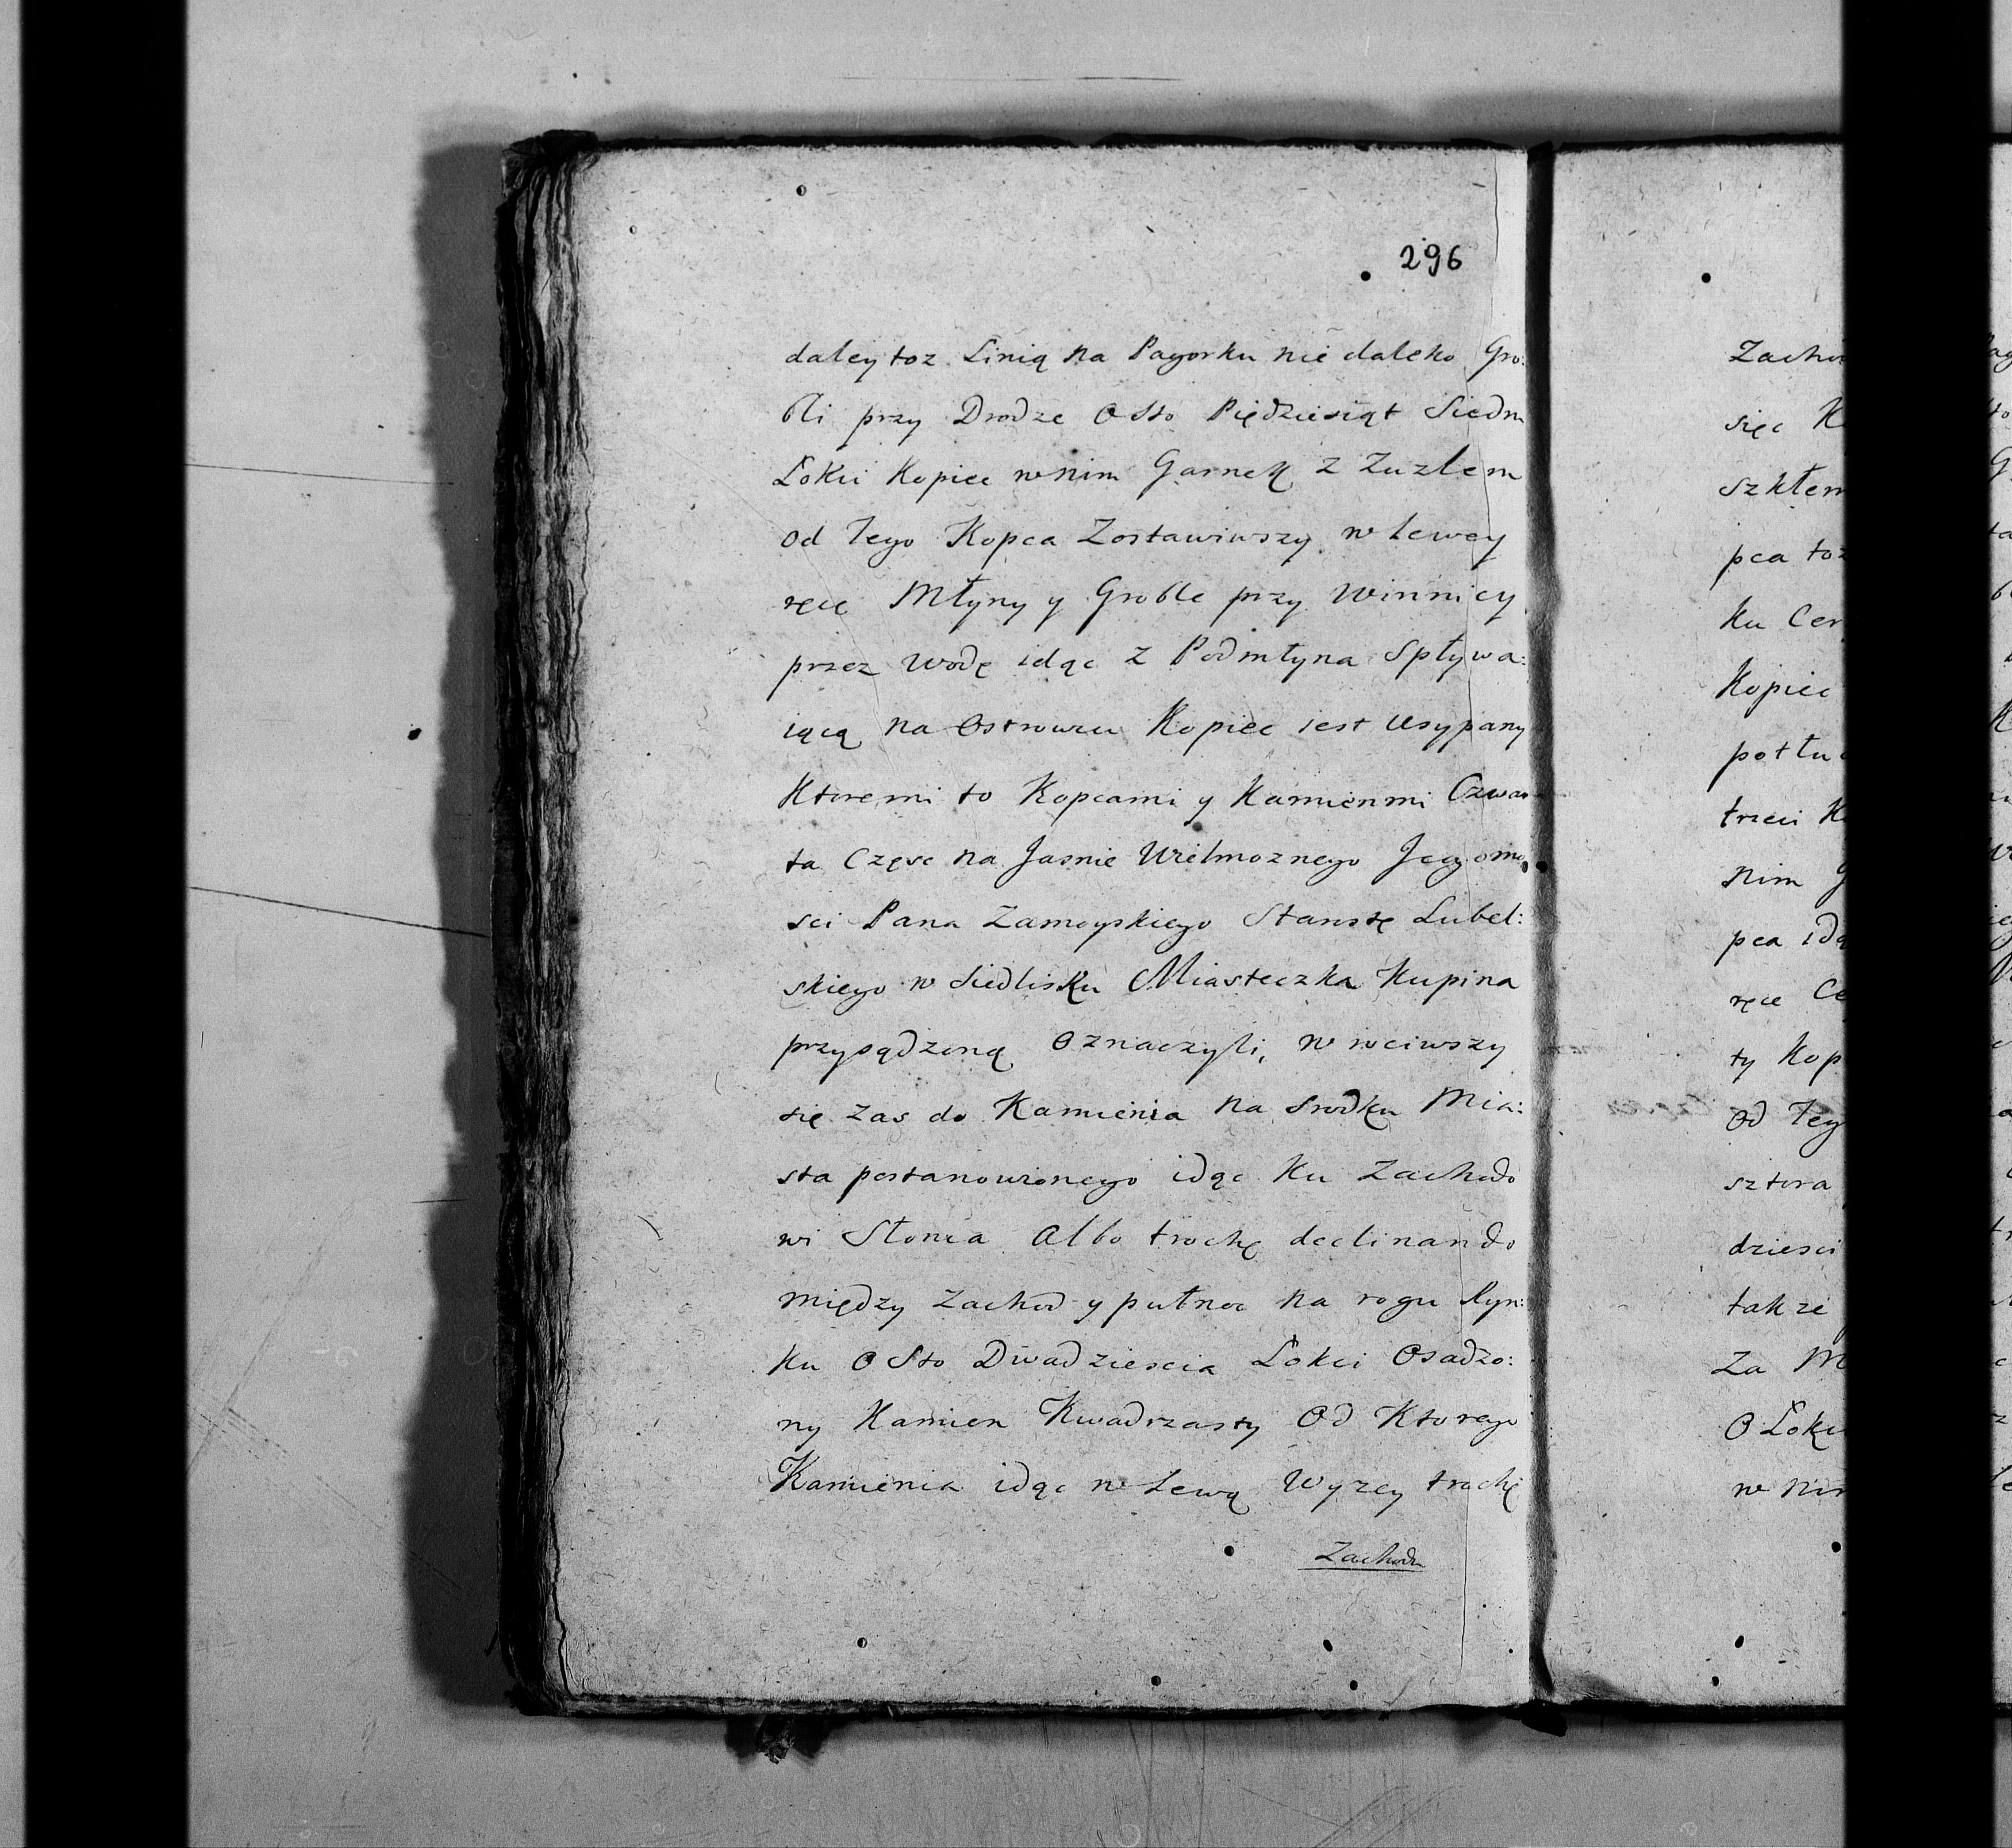 296
daley toz Linią na Pagorku nie daleko Gro:
bli przy Drodze o Sto Piędziesiąt Siedm
Łokci Kopiec w nim Garnek z Zuzlem
od Tego Kopca Zostawiwszy w Lewey
ręce Młyny y Groble przy Winnicy
przez Wodę idąc z Podmłyna Spływa:
iącą na Ostrowiu Kopiec iest Usypany
Ktoremi to Kopcami y Kamienmi Czwar
ta Częsc na Jasnie Wielmoznego Jegomo
sci Pana Zamoyskiego Starostę Lubel:
skiego w Siedlisku Miasteczka Kupina
przysądzoną Oznaczyli, wrociwszy
się zas do Kamienia na Srodku Mia:
sta postanowionego idąc ku Zachodo
wi Słonca Albo trochę declinando
między Zachod y pułnoc na rogu Ryn:
ku o Sto Dwadziescia Łokci Osadzo:
ny Kamien Kwadrzasty Od Ktorego
Kamienia idąc w Lewą Wyzey trochę
Zachodu
Zacho
sięc K
szkłem
pca toz
ku Cer
Kopiec
potłu
trzeci K
nim G
pca idą
ręce Ce
ty Kop
Od Teg
sztora
dziesci
takze
Za M
O Łokci
w nim